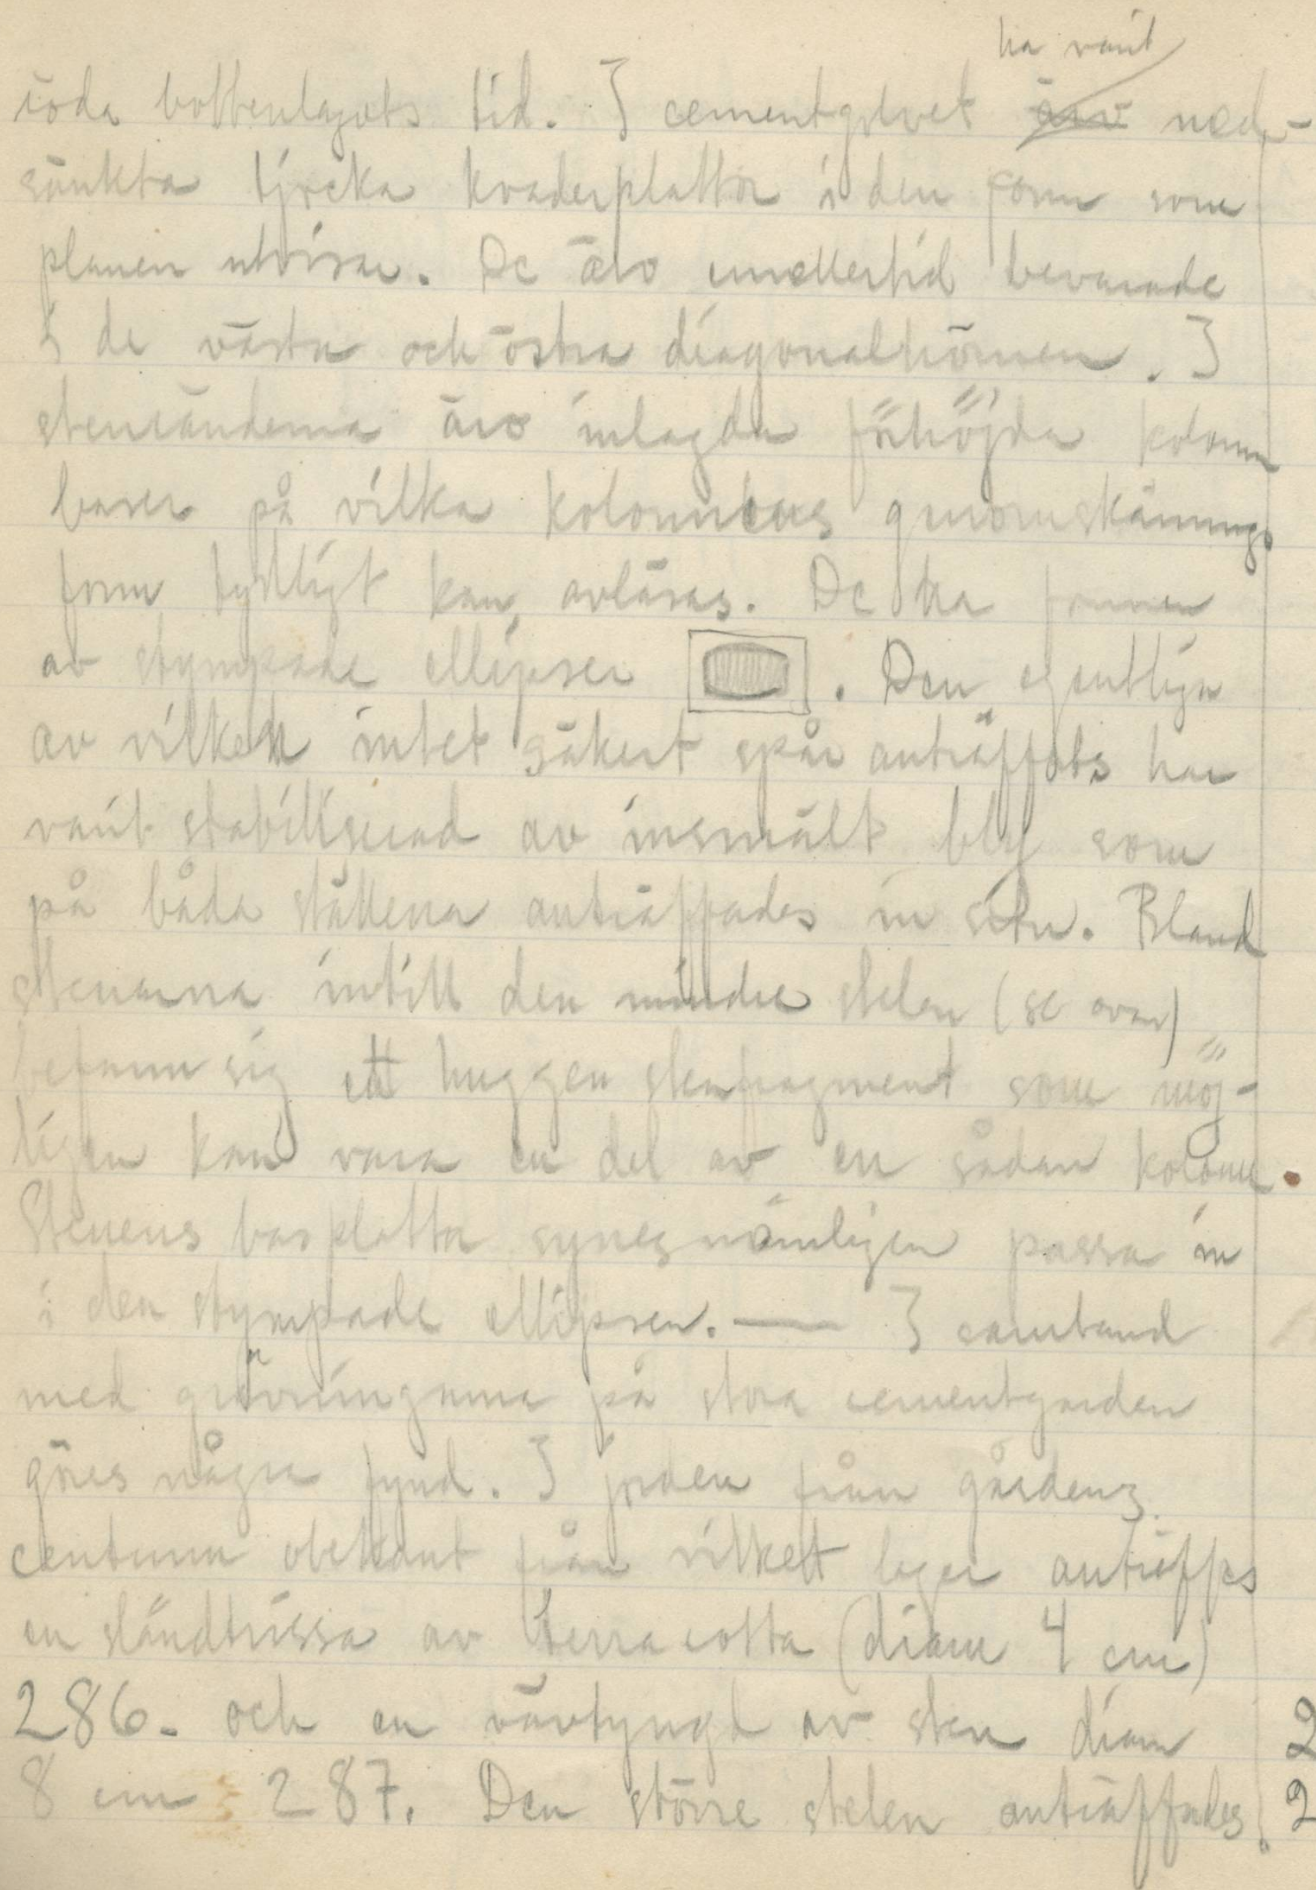 ha varit
röda bottenlagrets tid. I cementgolvet äro ned-
sänkta tjocka kvaderplattor i den form som
planen utvisar. De äro emellertid bevarade
i de västra och östra diagonalhörnen. I
stenränderna äro inlagda förhöjda kolonn
baser på vilka kolonnens genomskärnings
form tydligt kan avläsas. De ha formen
av stympade ellipser . Den egentliga
av vilken intet säkert spår anträffats har
varit stabiliserad av insmält bly som
på båda ställena anträffades in situ. Bland
stenarna intill den mindre stelen (se ovan)
befann sig ett huggen stenfragment som möj-
ligen kan vara en del av en sådan kolonn.
Stenens basplatta synes nämligen passa in
i den stympade ellipsen. — I samband
med grävningarna på stora cementgården
göres några fynd. I jorden från gårdens
centrum obekant från vilket lager anträffas
en sländtrissa av terracotta (diam 4 cm)
286. och en vävtyngd av sten diam 2
8 cm 287. Den större stelen anträffades 2